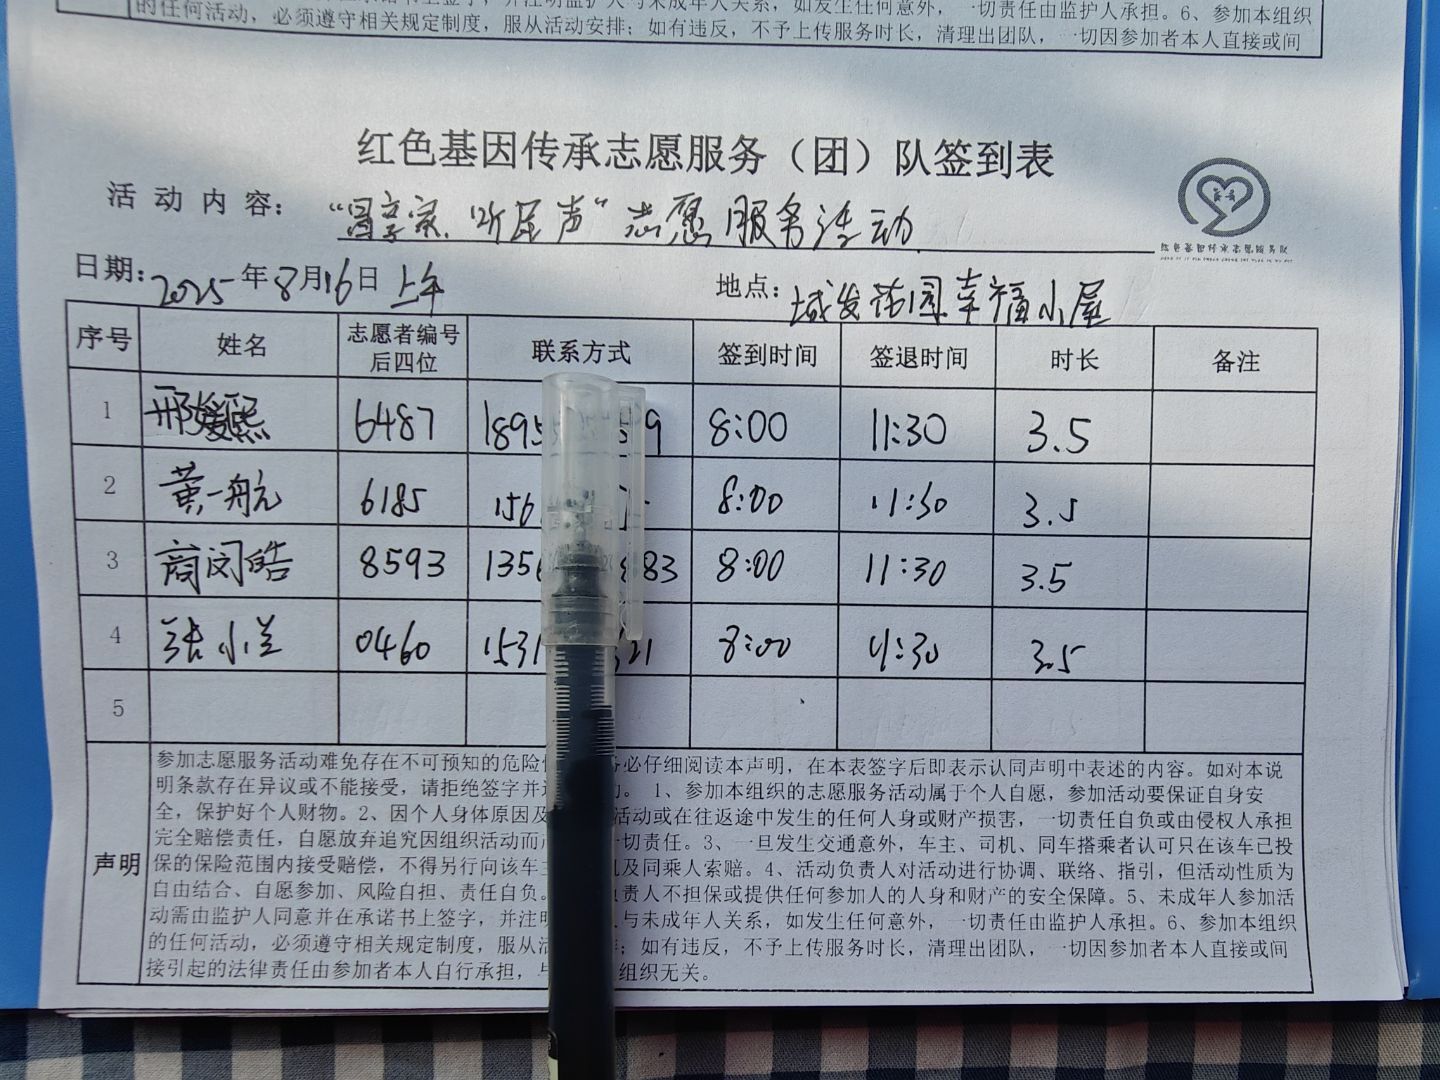 的任何活动，必须遵守相关规定制度，服从活动安排；如有违反，不予上传服务时长，清理出团队，一切因参加者本人直接或间
红色基因传承志愿服务（团）队签到表
活动内容： 听民声”志愿服务活动
日期：2025年8月16日 上午 地点：域发花园幸福小屋
序号 姓名 志愿者编号后四位 联系方式 签到时间 签退时间 时长 备注
1 邢媛熙 6487 1895 9 8:00 11:30 3.5
2 黄一航 6185 156 8:00 11:30 3.5
3 商闵皓 8593 135 83 8:00 11:30 3.5
4 张小兰 0460 1531 21 8:00 11:30 3.5
5
声明
参加志愿服务活动难免存在不可预知的危险 必仔细阅读本声明，在本表签字后即表示认同声明中表述的内容。如对本说
明条款存在异议或不能接受，请拒绝签字并 。1、参加本组织的志愿服务活动属于个人自愿，参加活动要保证自身安
全，保护好个人财物。2、因个人身体原因及 活动或在往返途中发生的任何人身或财产损害，一切责任自负或由侵权人承担
完全赔偿责任，自愿放弃追究因组织活动而 一切责任。3、一旦发生交通意外，车主、司机、同车搭乘者认可只在该车已投
保的保险范围内接受赔偿，不得另行向该车 及同乘人索赔。4、活动负责人对活动进行协调、联络、指引，但活动性质为
自由结合、自愿参加、风险自担、责任自负。 责人不担保或提供任何参加人的人身和财产的安全保障。5、未成年人参加活
动需由监护人同意并在承诺书上签字，并注 与未成年人关系，如发生任何意外，一切责任由监护人承担。6、参加本组织
的任何活动，必须遵守相关规定制度，服从 ；如有违反，不予上传服务时长，清理出团队，一切因参加者本人直接或间
接引起的法律责任由参加者本人自行承担， 组织无关。